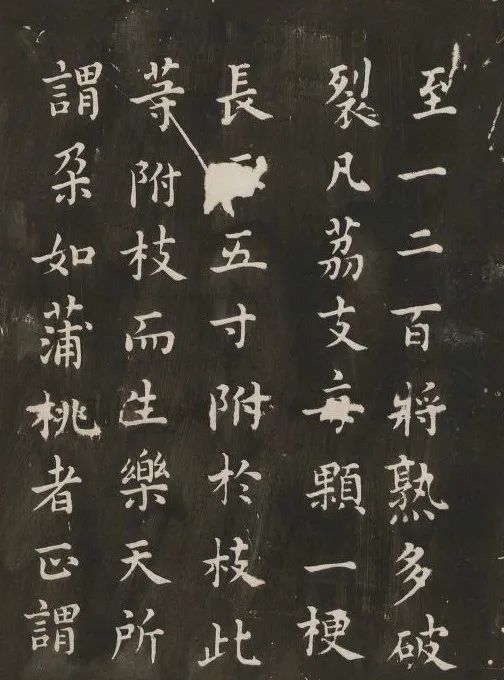 至一二百將熟多破
裂凡荔支每顆一梗
長五寸附於枝此
等附枝而生樂天所
謂朶如蒲桃者正謂